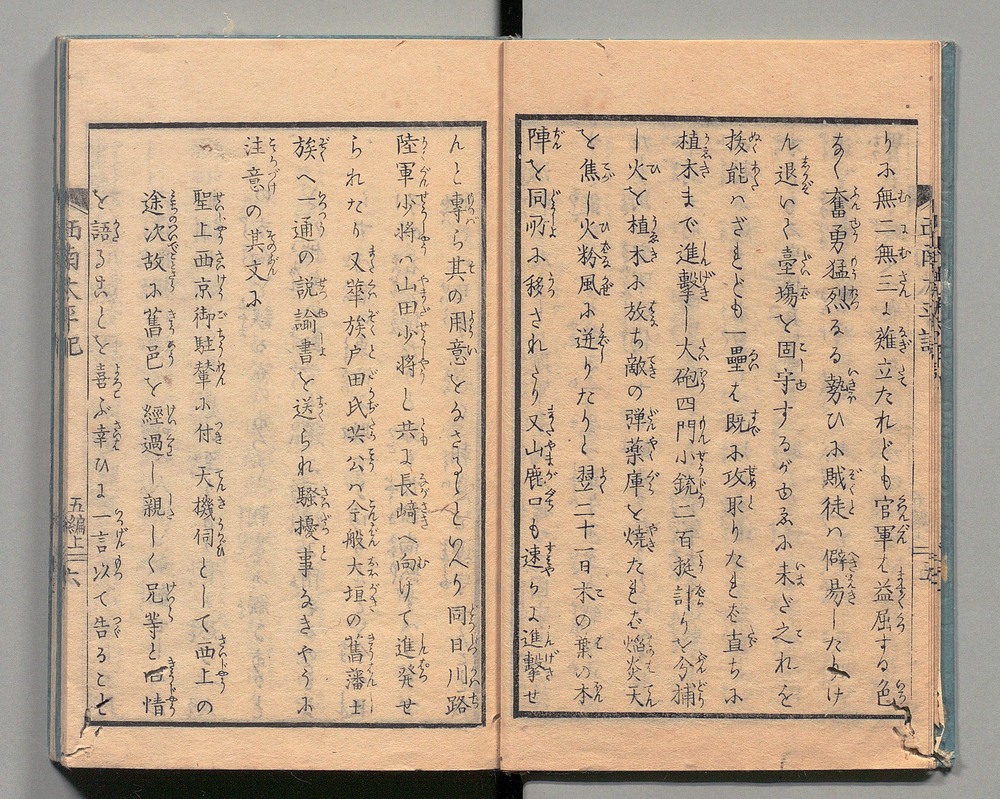 りふ無二無三よ薙立たれども官軍も益屈する色
なく奮勇猛烈なる勢ひふ賊徒ハ僻易したりけ
ん退いく臺場を固守するが由ゑふ未だ之れを
抜能ハざれども一壘も既ふ攻取りたれバ直ちふ
植木まで進撃し大砲四門小銃二百挺計りを分捕
し火を植木ふ放ち敵の弾薬庫を焼たれバ焔炎天
を焦し火粉風ふ迸りたりと翌二十一日木の葉の本
陣を同所ふ移されたり又山鹿口も速かよ進撃せ
んと専ら其の用意をなさるゝといへり同日川路
陸軍少将ハ山田少将と共よ長崎へ向けて進発せ
られたり又華族戸田氏共公ハ今般大垣の舊藩士
族へ一通の説諭書を送られ騒擾事なきやうふ
注意の其文ふ
聖上西京御駐輦ふ付天機伺として西上の
途次故ふ舊邑を經過し親しく兄等と情
を語ることを喜ぶ幸ひよ一言以て告ること
西南太平記
五編上
六